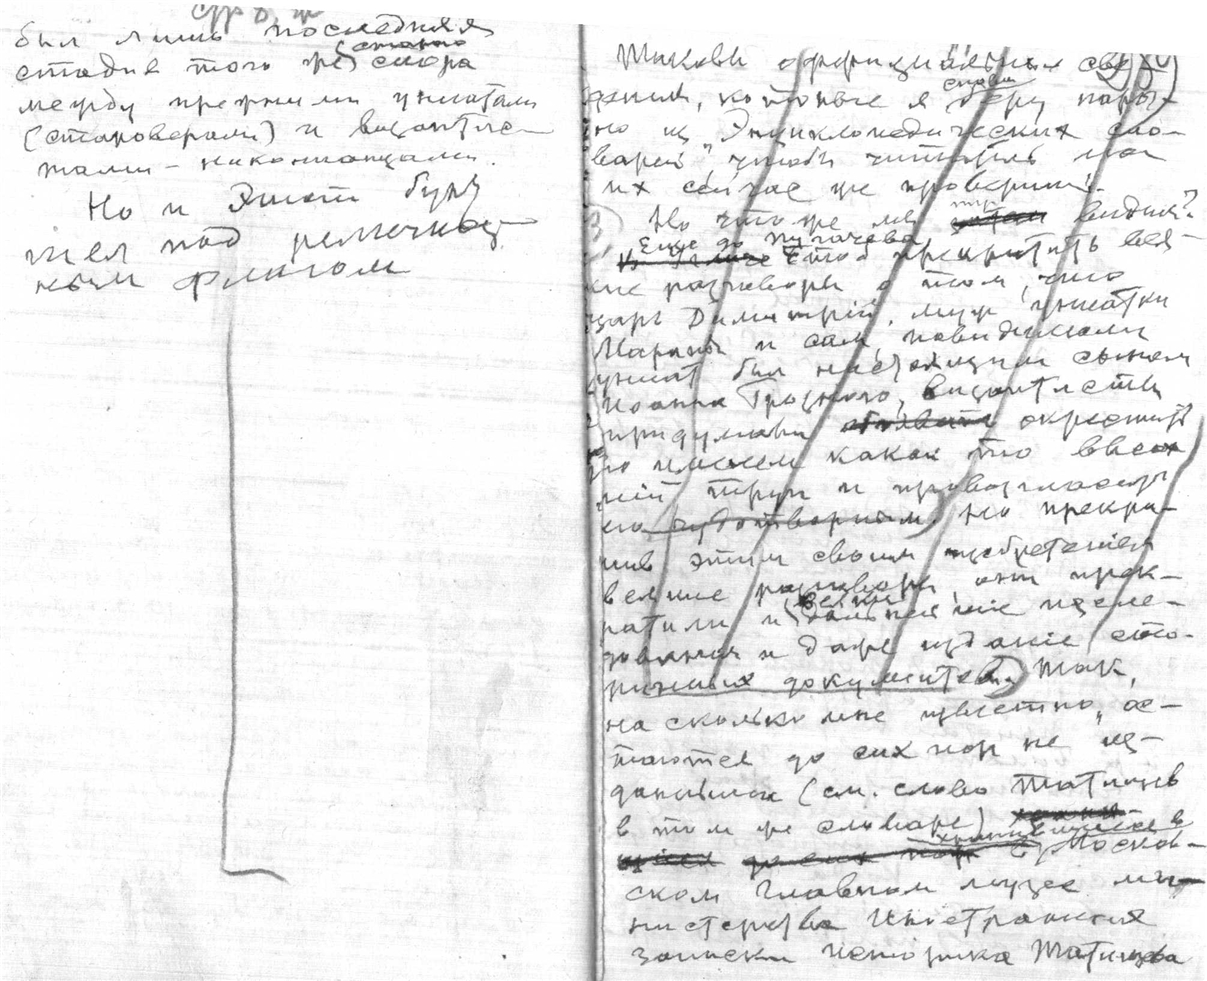 стр
был лишь последняя
стадия того же старого спора
между прежними униатами
(староверами) и византис-
тами - никонианцами.
Но и этот бунт
шел под религиоз-
ным флагом
Таковы оффициальныя све-
дения, которые я снова беру нароч-
но из "Энциклопедических сло-
варей" чтобы читатель мог
их сейчас же проверить.
Но что же мы тут видим?
Еще до Пугачева чтоб прекратить вся-
кие разговоры о том, что
царь Димитрий, муж униатки
Марины и сам, повидимому
униат был настоящим сыном
Иоанна Грозного, византисты
придумали окрестить
его именем какой то
труп и провозгласить
его чудотворным. Но прекра-
тив этим своим изобретением
великие разговоры, они прек-
ратили и всякие дальнейшие иссле-
дования и даже издание сто-
ронних документов. Так,
на сколько мне известно, ос-
таются до сих пор не из-
данными (см. слово Татищев
в том же словаре)
хранящиеся в Москов-
ском Главном музее ми-
нистерства Иностранных
записки историка Татищева